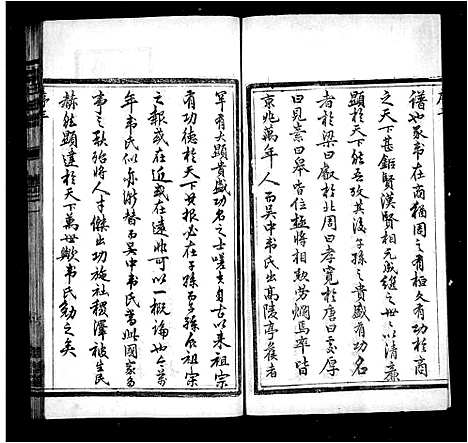 譜也豕韋在商猶周之有桓文有功於商
之天下甚鉅賢漢賢相元成繼之世以清廉
顯於天下然吾攷其後子孫之貴盛有功名
者於梁曰叡於北周曰孝寬於唐曰安厚
曰見素曰皋皆位極將相勲勞爛焉率皆
京兆萬年人而吳中韋氏出高陵亭侯者
罕有大顯貴盛功名之士嗟夫自古以來祖宗
有功德於天下其報必在子孫而子孫食祖宗
之報或在近或在遠非可以一概論也今萬
年韋氏似亦漸替而吳中韋氏當此國家多
事之秋殆將人才傑出功施社稷澤被生民
赫然顯達於天下萬世歟韋氏勉之矣